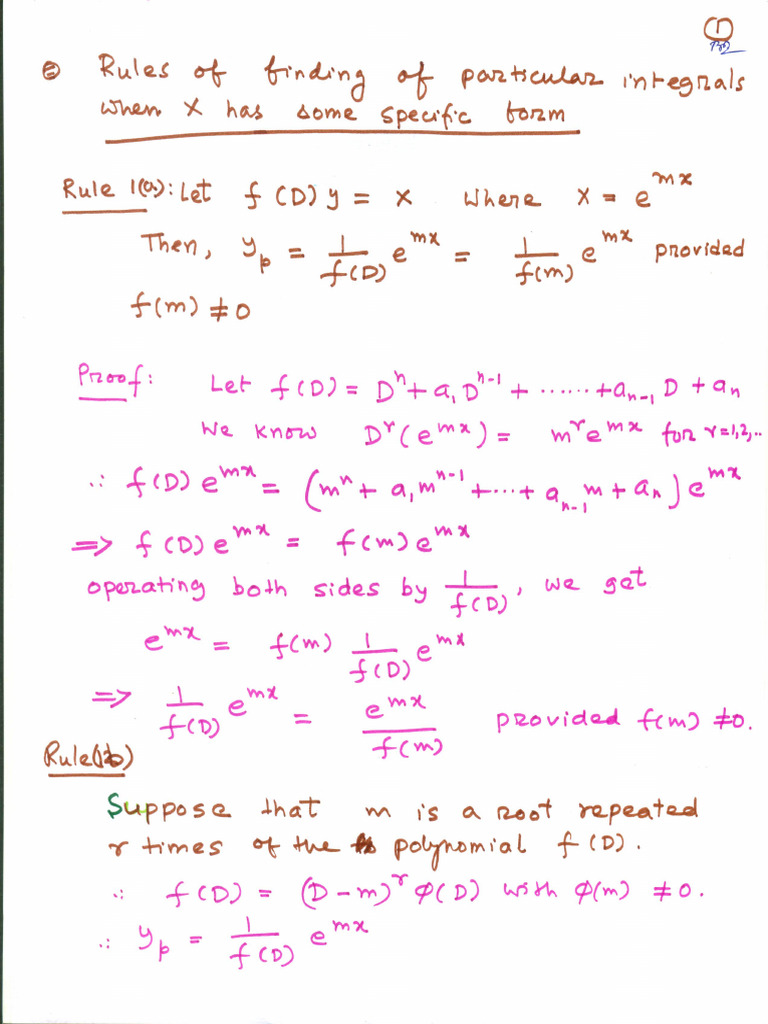 ①
⊜ Rules of finding of particular integrals
when X has some specific form
Rule 1(a): Let f(D)y = X where X = e^{mx}
Then, y_p = \frac{1}{f(D)} e^{mx} = \frac{1}{f(m)} e^{mx} provided
f(m) ≠ 0
Proof: Let f(D) = D^n + a_1 D^{n-1} + ...... + a_{n-1} D + a_n
We know D^r(e^{mx}) = m^r e^{mx} for r=1,2,..
∴ f(D) e^{mx} = (m^n + a_1 m^{n-1} + ... + a_{n-1} m + a_n) e^{mx}
⟹ f(D) e^{mx} = f(m) e^{mx}
operating both sides by \frac{1}{f(D)}, we get
e^{mx} = f(m) \frac{1}{f(D)} e^{mx}
⟹ \frac{1}{f(D)} e^{mx} = \frac{e^{mx}}{f(m)} provided f(m) ≠ 0.
Rule(1b)
Suppose that m is a root repeated
r times of the polynomial f(D).
∴ f(D) = (D-m)^r φ(D) with φ(m) ≠ 0.
∴ y_p = \frac{1}{f(D)} e^{mx}